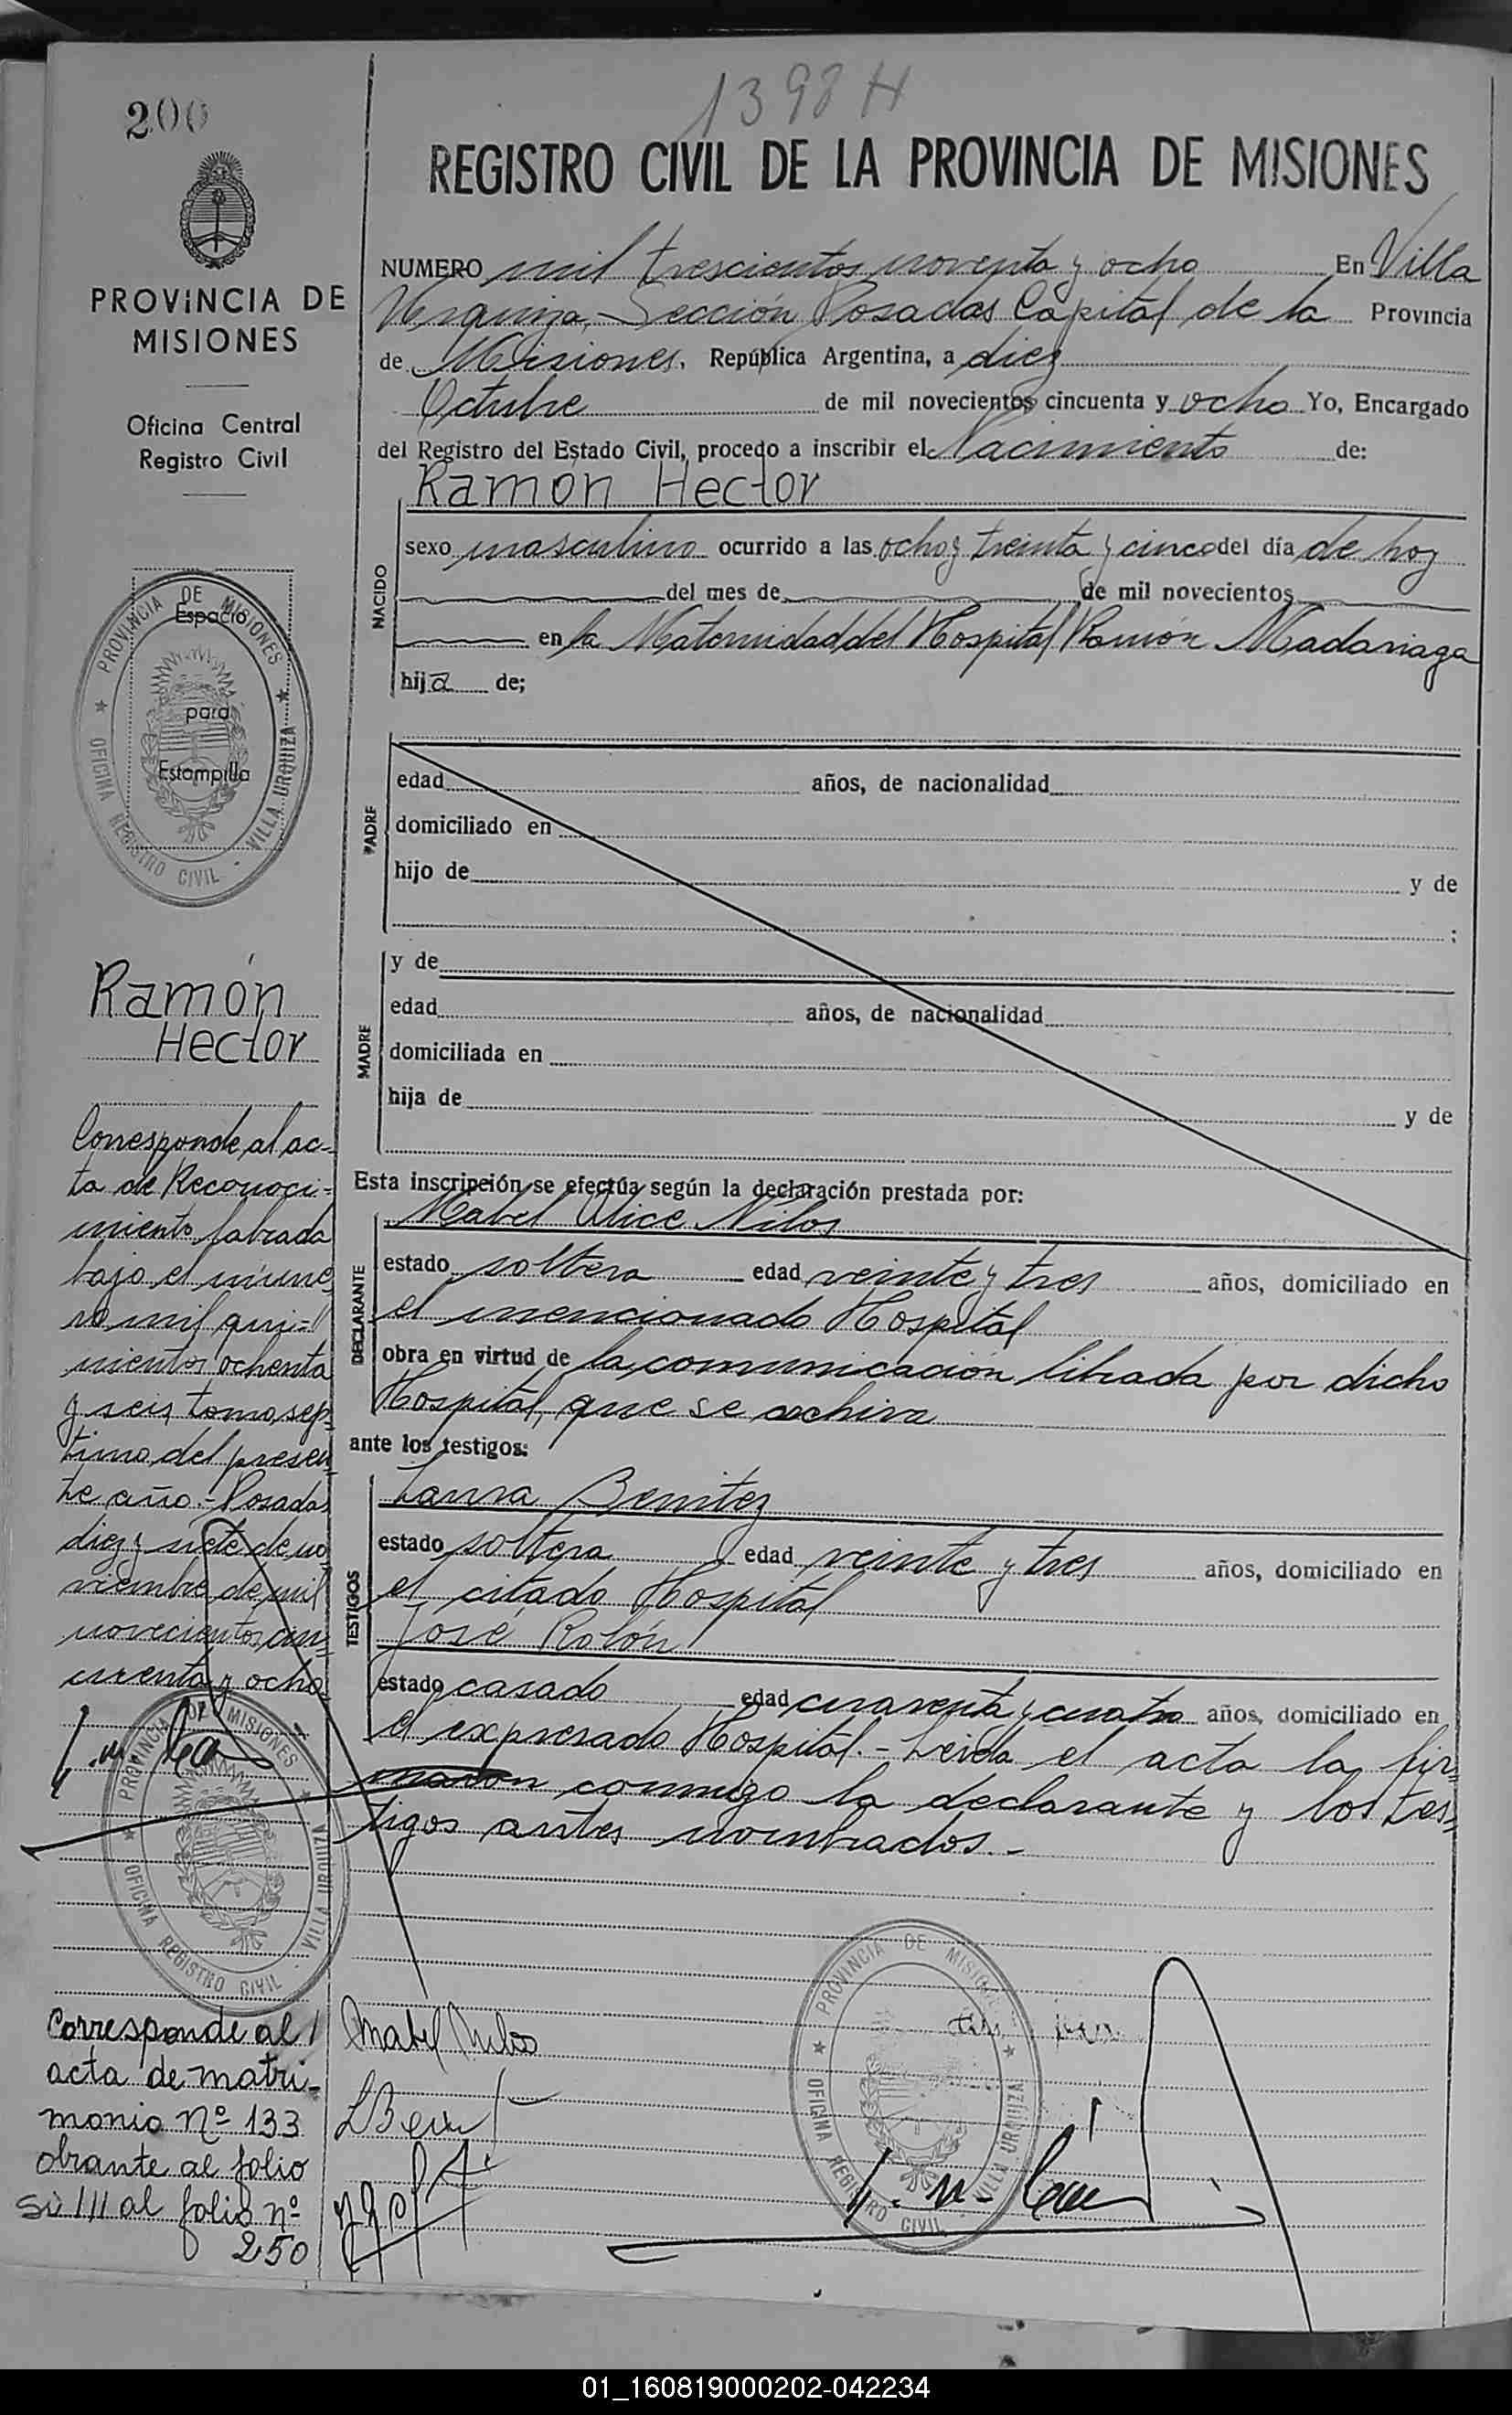 1398 H
200
REGISTRO CIVIL DE LA PROVINCIA DE MISIONES
PROVINCIA DE
MISIONES
Oficina Central
Registro Civil
NUMERO mil trescientos noventa y ocho En Villa
Urquiza, Sección Posadas Capital de la Provincia
de Misiones, República Argentina, a diez
Octubre de mil novecientos cincuenta y ocho Yo, Encargado
del Registro del Estado Civil, procedo a inscribir el Nacimiento de:
Ramón Hector
NACIDO
sexo masculino ocurrido a las ocho y treinta y cinco del día de hoy
del mes de de mil novecientos
en la Maternidad del Hospital Ramón Madariaga
hija de;
PROVINCIA DE MISIONES
OFICINA REGISTRO CIVIL - VILLA URQUIZA
Espacio
para
Estampilla
PADRE
edad años, de nacionalidad
domiciliado en
hijo de y de
;
MADRE
y de
edad años, de nacionalidad
domiciliada en
hija de y de
Esta inscripción se efectúa según la declaración prestada por:
Mabel Alice Nilos
DECLARANTE
estado soltera edad veinte y tres años, domiciliado en
el mencionado Hospital
obra en virtud de la comunicación librada por dicho
Hospital, que se archiva
ante los testigos:
Laura Benitez
TESTIGOS
estado soltera edad veinte y tres años, domiciliado en
el citado Hospital
José Rolón
estado casado edad cuarenta y cuatro años, domiciliado en
el expresado Hospital.- Leída el acta la fir=
maron conmigo la declarante y los tes=
tigos antes nombrados.-
Ramón
Hector
Corresponde al ac=
ta de Reconoci=
miento labrada
bajo el núme
ro mil qui=
nientos ochenta
y seis tomo sep=
timo del presen=
te año.- Posadas
diez y siete de no
viembre de mil
novecientos cin=
cuenta y ocho
PROVINCIA DE MISIONES
OFICINA REGISTRO CIVIL - VILLA URQUIZA
Corresponde al
acta de matri-
monio nº 133
obrante al folio
250
Mabel Nilos
PROVINCIA DE MISIONES
OFICINA REGISTRO CIVIL - VILLA URQUIZA
01_160819000202-042234